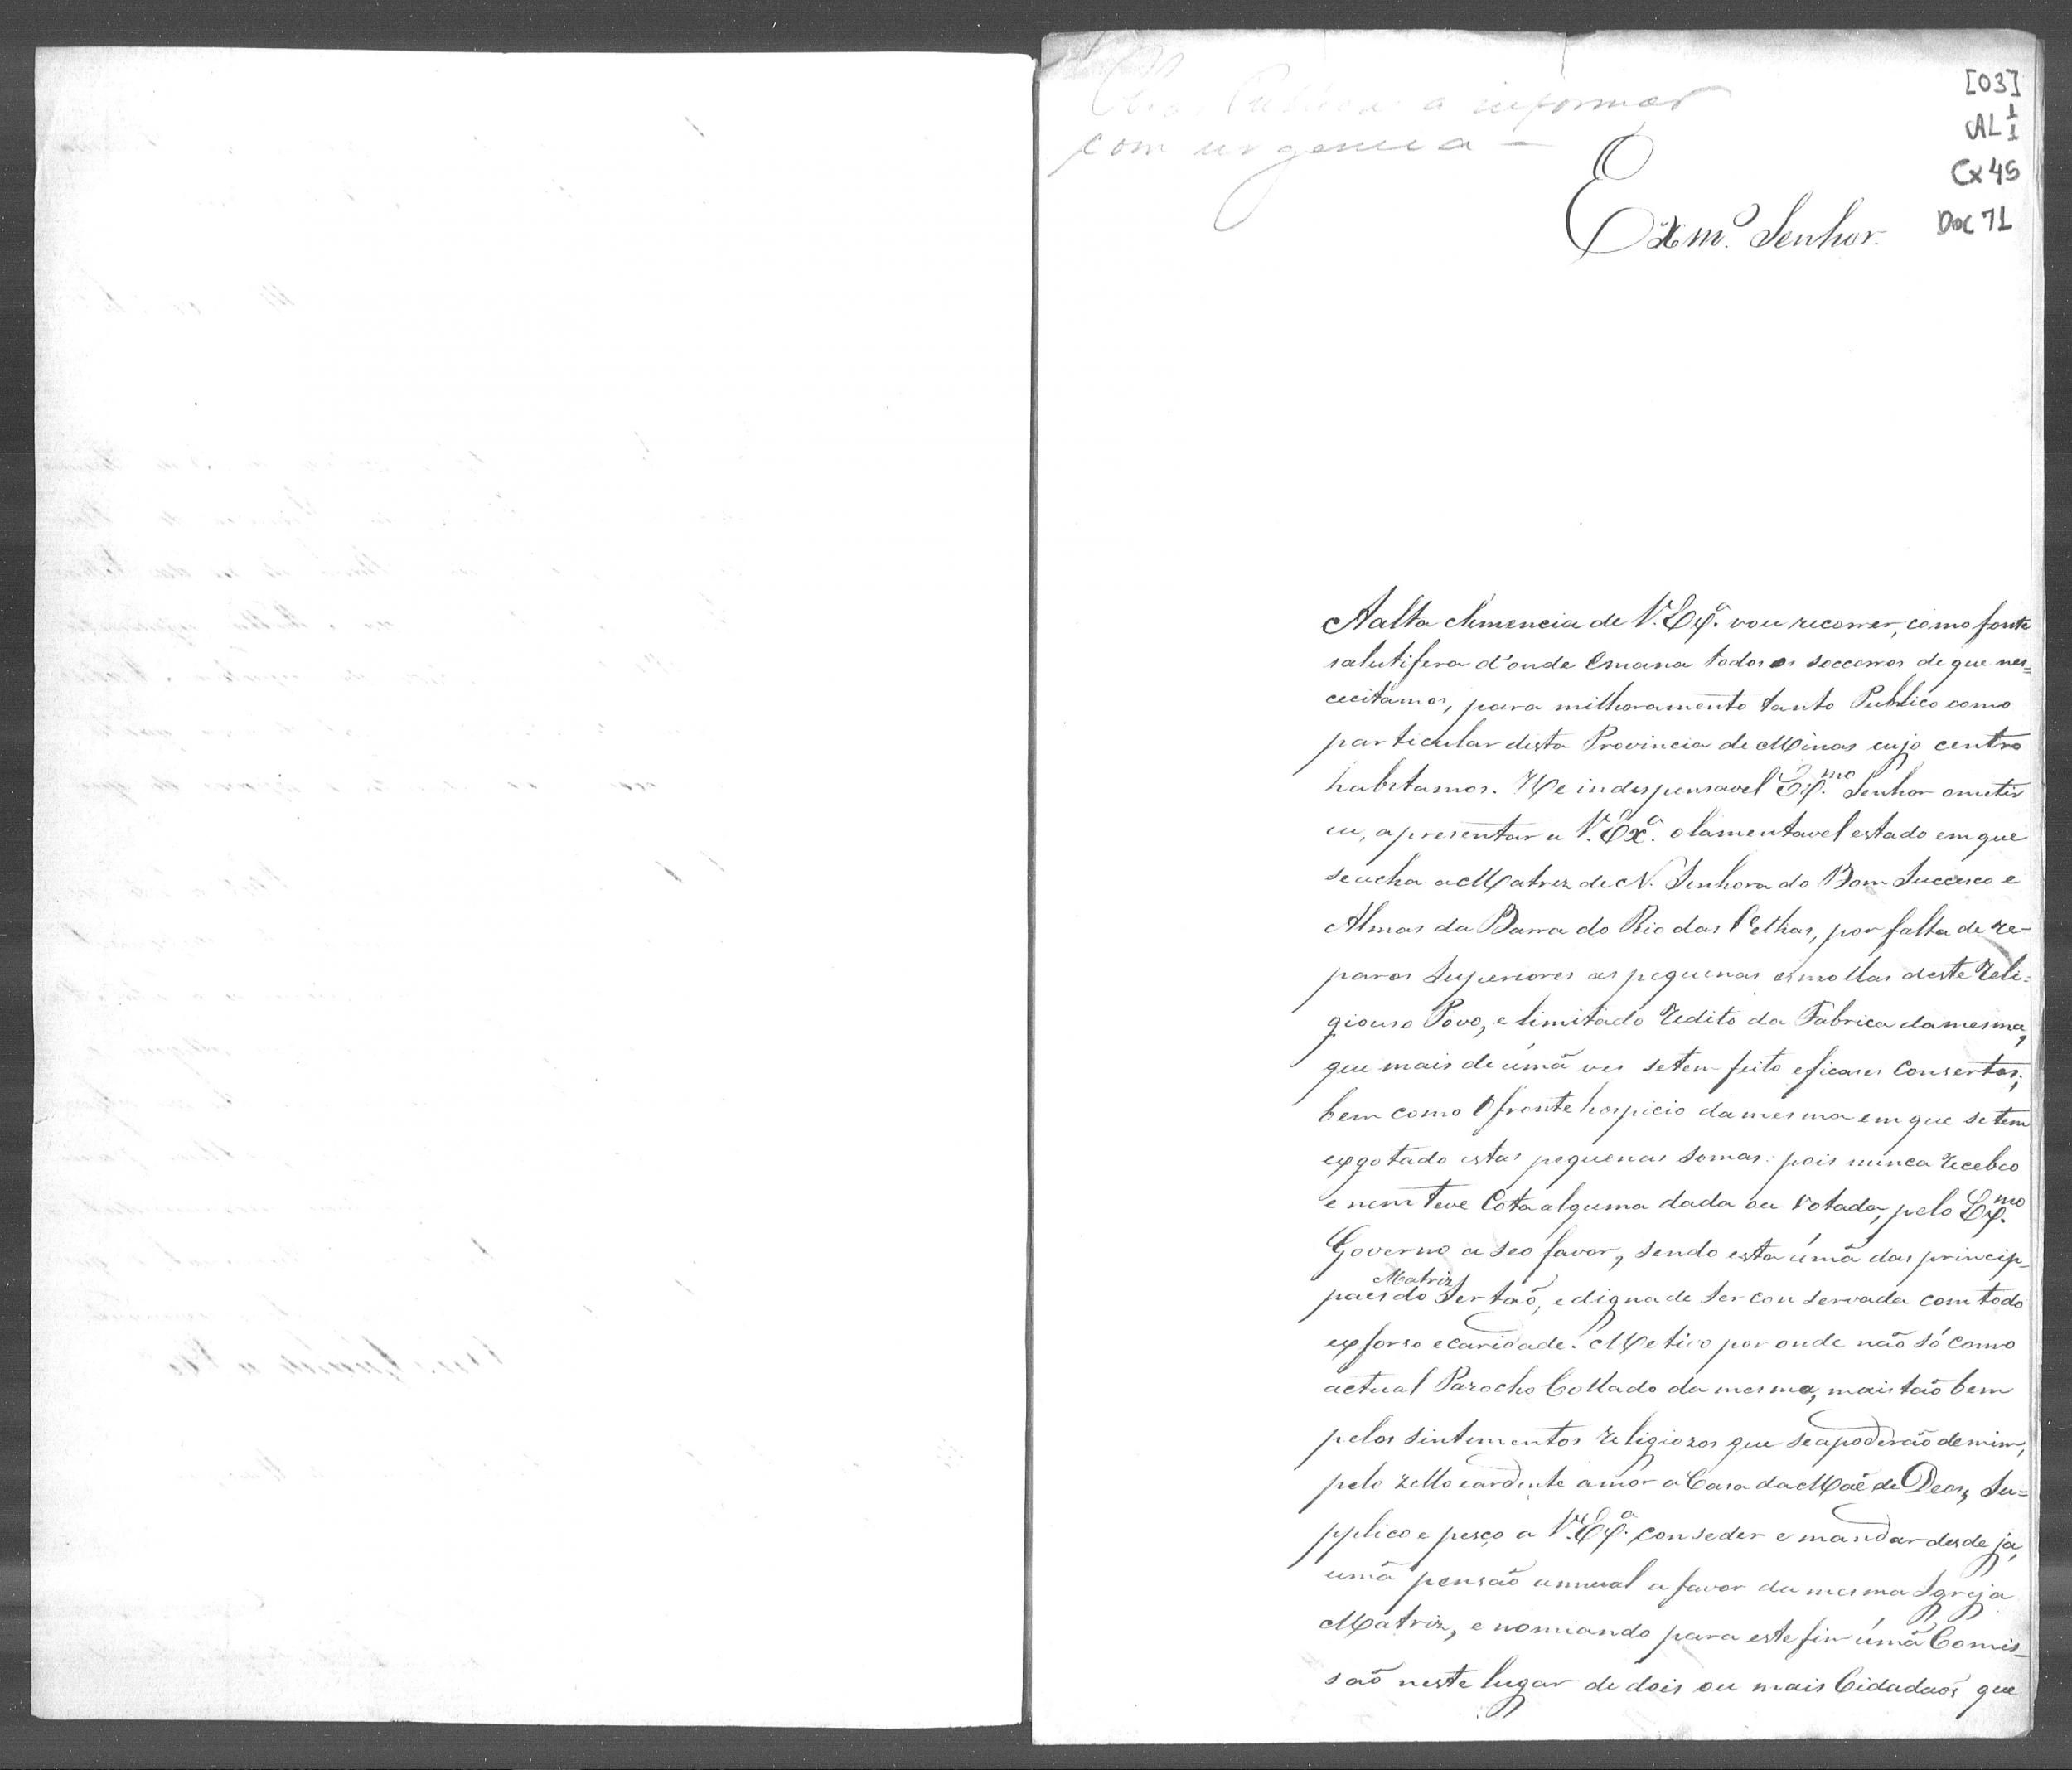 Obras Publicas a informar
com urgencia —
[03]
AL 1/1
Cx 45
Doc 71
Exmº. Senhor.
A alta clemencia de V. Exª. vou recorrer, como fonte
salutifera d'onde emana todos os soccorros de que nes=
cecitamos, para milhoramento tanto Publico como
particular desta Provincia de Minas cujo centro
habitamos. He indespensavel Exmo. Senhor omitir
eu, apresentar a V. Exª. o lamentavel estado em que
se acha a Matriz de N. Senhora do Bom Succeso e
Almas da Barra do Rio das Velhas, por falta de re-
paros Superiores as pequenas esmollas deste Reli=
giouso Povo, e limitado Redito da Fabrica da mesma,
que mais de úmã ves se tem feito eficases Consertos;
bem como O frontehospicio da mesma em que se tem
exgotado estas pequenas somas: pois nunca recebeo
e nem teve Cota alguma dada ou votada, pelo Exmo.
Governo a seo favor, sendo esta úmã das princip-
paes Matriz do Sertaõ, e digna de ser conservada com todo
exforso e caridade. Motivo por onde não só como
actual Parocho Collado da mesma, mais taõ bem
pelos sintimentos religiozos que se apoderaõ de mim,
pelo zello e ardente amor a Casa da Maẽ de Deos, Su=
pplico e pesço a V. Exª. conseder e mandar desde já,
umã pensaõ annual a favor da mesma Igreja
Matriz, e nomiando para este fim úmã Comis_
saõ neste lugar de dois ou mais Cidadaõs que